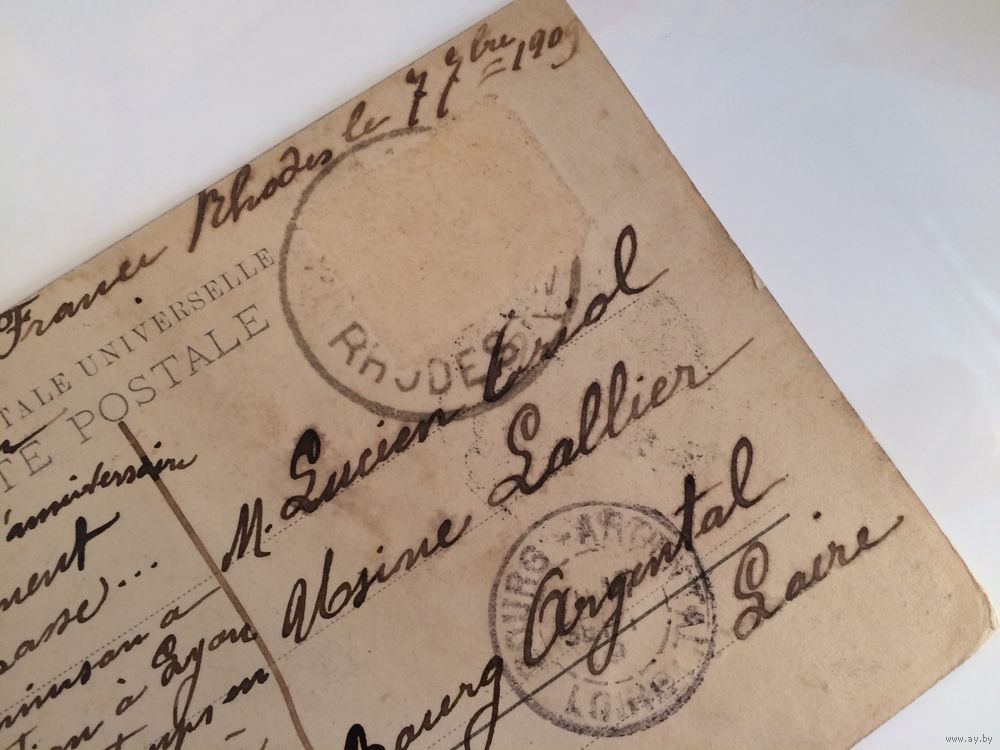 France Rhodes le 7 7bre 1909
TALE UNIVERSELLE
TE POSTALE
RHODES
'anniversaire
ment
asse...
à Lyon
en
M. Lucien Oriol
Usine Lallier
Bourg Argental
Loire
BOURG-ARGENTAL
LOIRE
www.ay.by